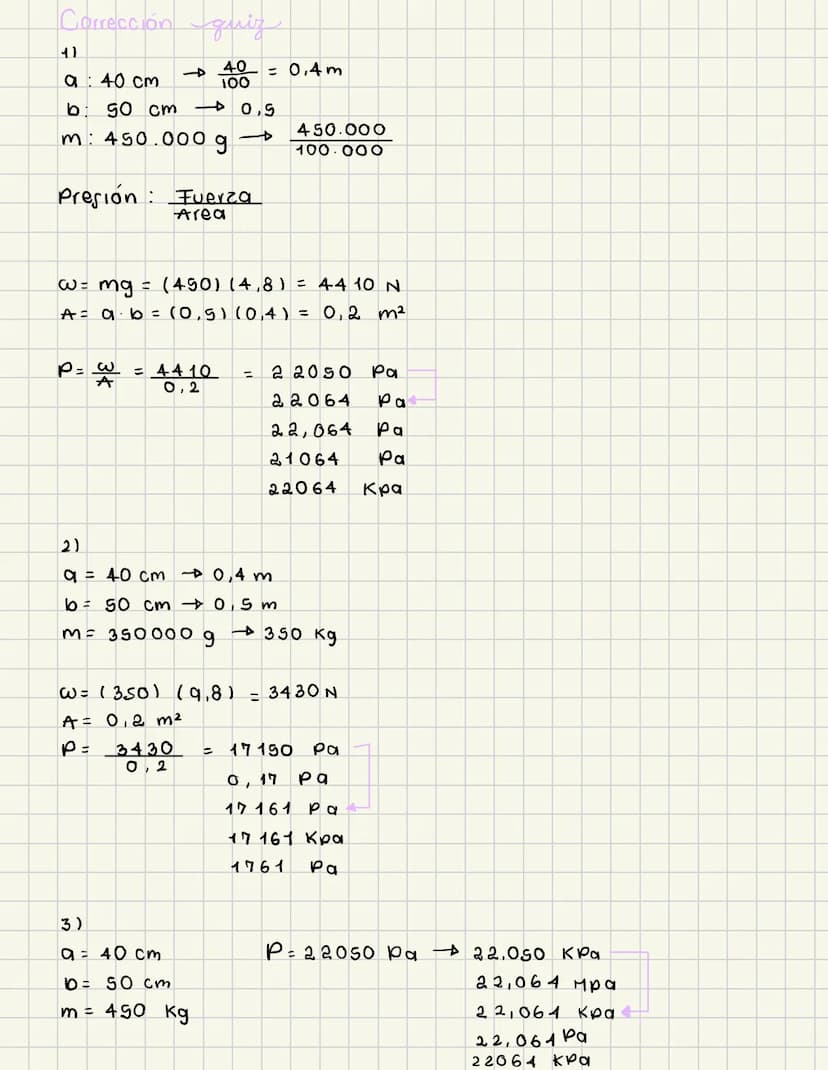 Corrección quiz
1)
a : 40 cm → 40/100 = 0,4 m
b: 50 cm → 0,5
m: 450.000 g → 450.000/100.000
Presión : Fuerza/Area
ω= mg = (450) (4,8) = 4410 N
A= a·b = (0,5) (0,4) = 0,2 m²
P= ω/A = 4410/0,2 = 22050 Pa
22064 Pa
22,064 Pa
21064 Pa
22064 Kpa
2)
a = 40 cm → 0,4 m
b= 50 cm → 0,5 m
m= 350000 g → 350 Kg
ω= (350) (9,8) = 3430 N
A= 0,2 m²
P= 3430/0,2 = 17150 Pa
0,17 Pa
17161 Pa
17161 Kpa
1761 Pa
3)
a= 40 cm P= 22050 Pa → 22.050 KPa
b= 50 cm 22,064 Mpa
m= 450 Kg 22,061 Kpa
22,061 Pa
22061 kPa